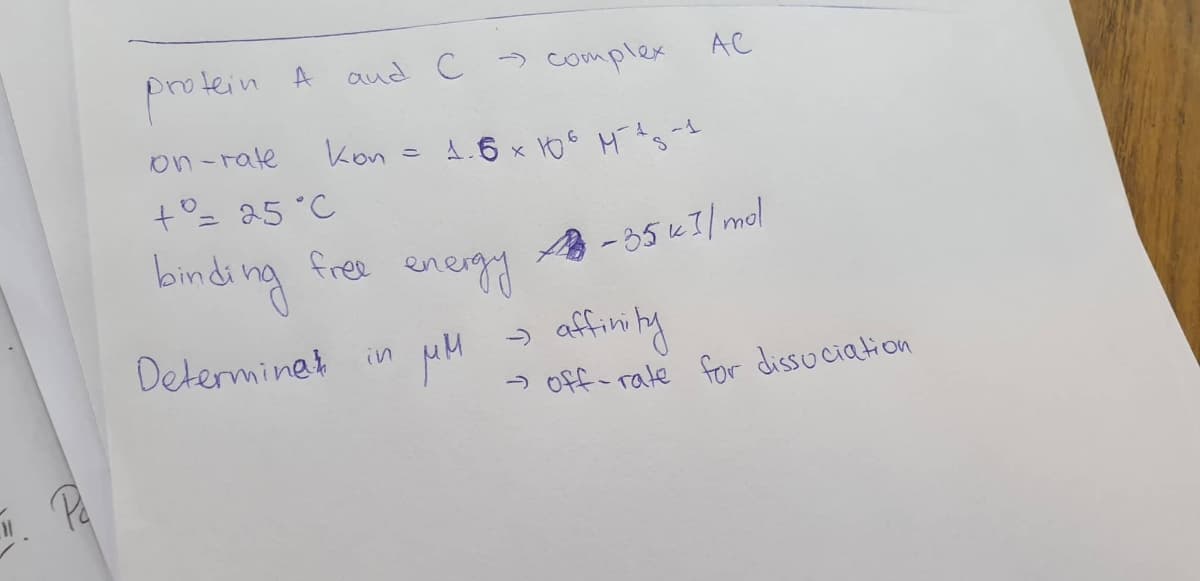 protein A and C → complex AC
on-rate Kon = 1.6 × 10⁶ M⁻¹s⁻¹
t⁰= 25 °C
binding free energy -35 kJ/mol
Determinet in μM → affinity
→ off-rate for dissociation
II. Pa